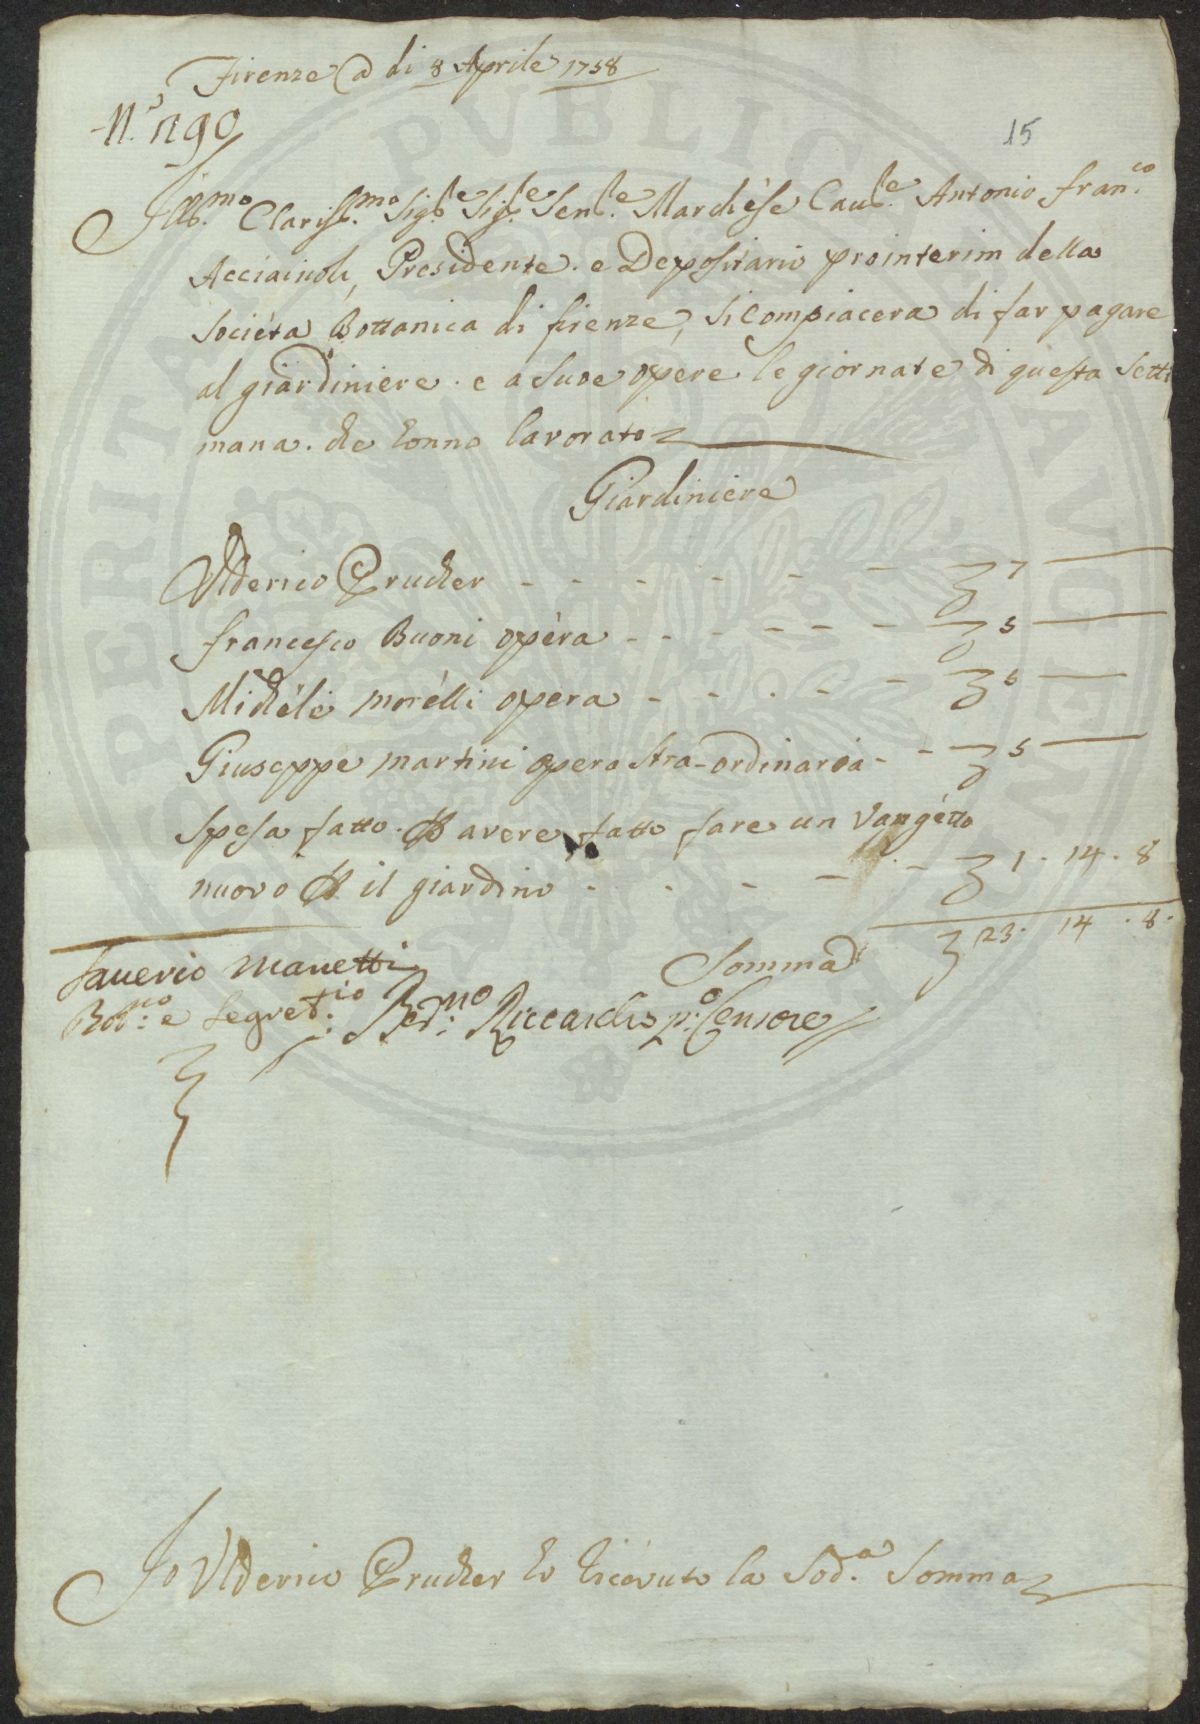 Firenze a di 8 Aprile 1758
N.° 190
15
Ill.mo Clariss.mo Sig.re Sig.re Sen.re Marchèse Cau.re Antonio Fran.co
Acciaiuoli, Presidente. e Depositario prointerim della
Società Bottanica di firenze, si Compiacera di far pagare
al giardiniere. e a sue opere le giornate di questa setti
mana. che honno lavorato
Giardiniere
Ulderico Prucher - - - - - - 7
francesco Buoni opèra - - - - - - - 5
Michéle morèlli opera - - . - - 5
Giuseppe martini opera stra-ordinaria - - 5
spesa fatto. P avere fatto fare un Vangétto
nuovo P il giardino - - - - - 1 . 14 . 8
Somma 23 . 14 . 8 .
Saverio Manetti
e Segret.rio Ber.mo Riccardi p.o Censore
Io Ulderico Prucher ho ricevuto la Sod.a Somma